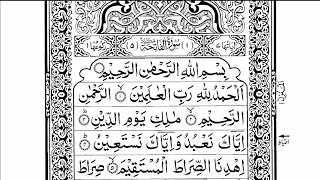 اٰيَاتُهَا ٧ (١) سُوْرَةُ الْفَاتِحَةِ (٥) رُكُوْعُهَا ١
بِسْمِ اللّٰهِ الرَّحْمٰنِ الرَّحِيْمِ
اَلْحَمْدُ لِلّٰهِ رَبِّ الْعٰلَمِيْنَ ۙ١ الرَّحْمٰنِ
الرَّحِيْمِ ۙ٢ مٰلِكِ يَوْمِ الدِّيْنِ ؕ٣
اِيَّاكَ نَعْبُدُ وَاِيَّاكَ نَسْتَعِيْنُ ؕ٤
اِهْدِنَا الصِّرَاطَ الْمُسْتَقِيْمَ ۙ٥ صِرَاطَ